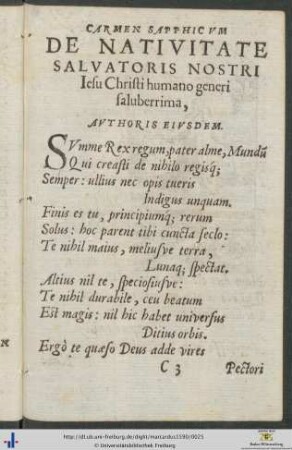 CARMEN SAPPHICVM
DE NATIVITATE
SALVATORIS NOSTRI
Iesu Christi humano generi
saluberrima,
AVTHORIS EIVSDEM.
SVmme Rex regum, pater alme, Mundũ
Qui creasti de nihilo regisq;
Semper: ullius nec opis tueris
Indigus unquam.
Finis es tu, principiumq; rerum
Solus: hoc parent tibi cuncta seclo:
Te nihil maius, meliusve terra,
Lunaq; spectat.
Altius nil te, speciosiusve:
Te nihil durabile, ceu beatum
Est magis: nil hic habet universus
Ditius orbis.
Ergò te quæso Deus adde vires
C 3 Pectori
http://dl.ub.uni-freiburg.de/diglit/martardus1590/0025
© Universitätsbibliothek Freiburg